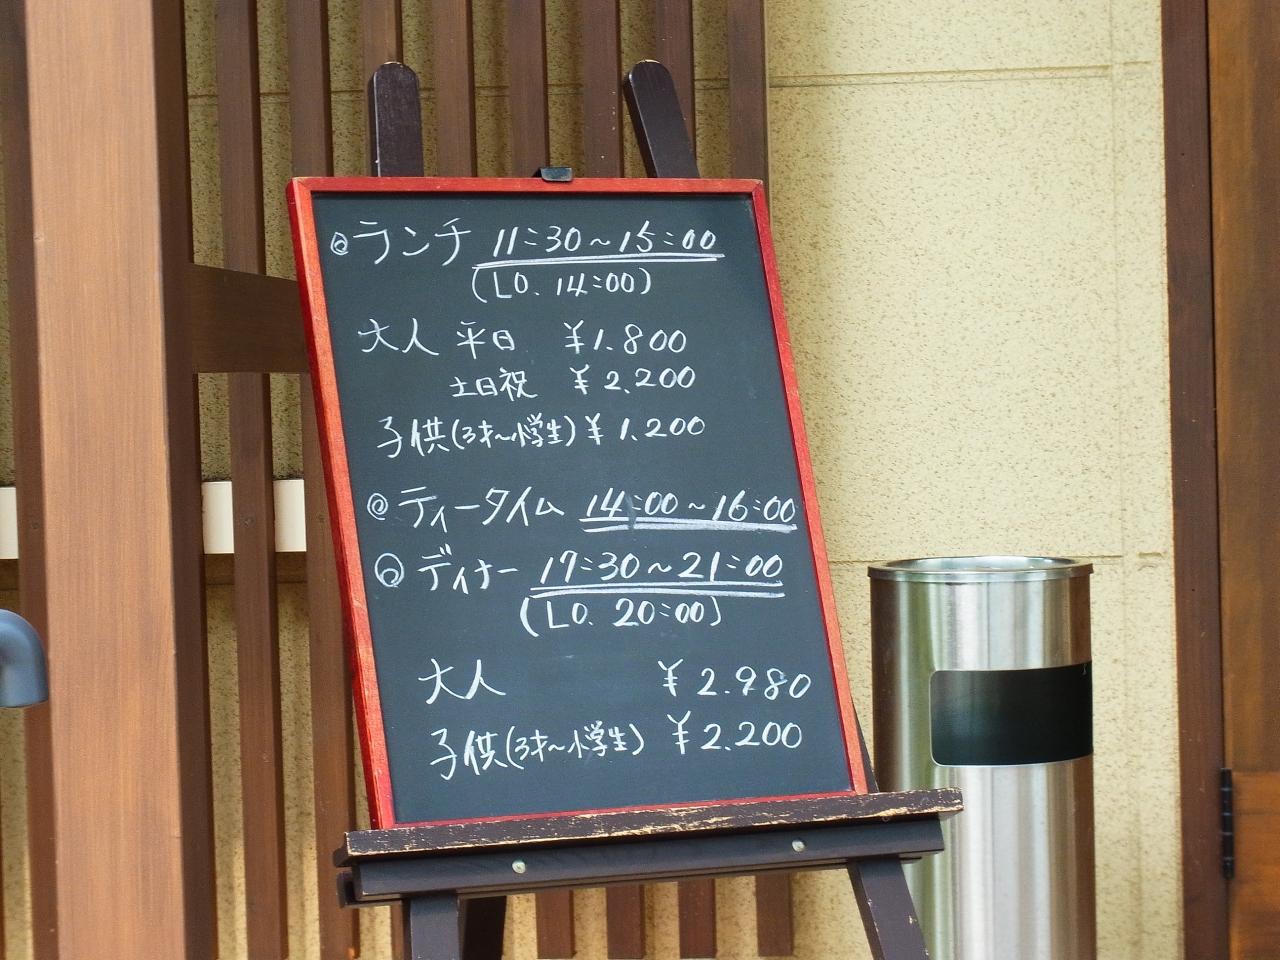 ◎ランチ 11:30～15:00
(LO. 14:00)
大人 平日 ¥1.800
土日祝 ¥2.200
子供(3才～小学生) ¥1.200
◎ティータイム 14:00～16:00
◎ディナー 17:30～21:00
(LO. 20:00)
大人 ¥2.980
子供(3才～小学生) ¥2.200